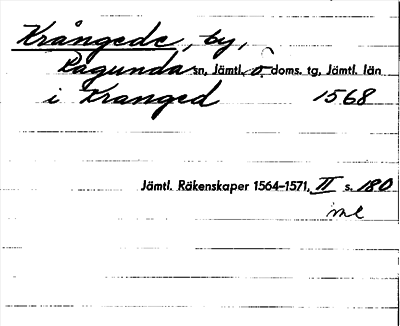 Krångede, by,
Ragunda sn, Jämtl. ö. doms. tg, Jämtl. län
i Kranged 1568
Jämtl. Räkenskaper 1564–1571, II s. 180
ml